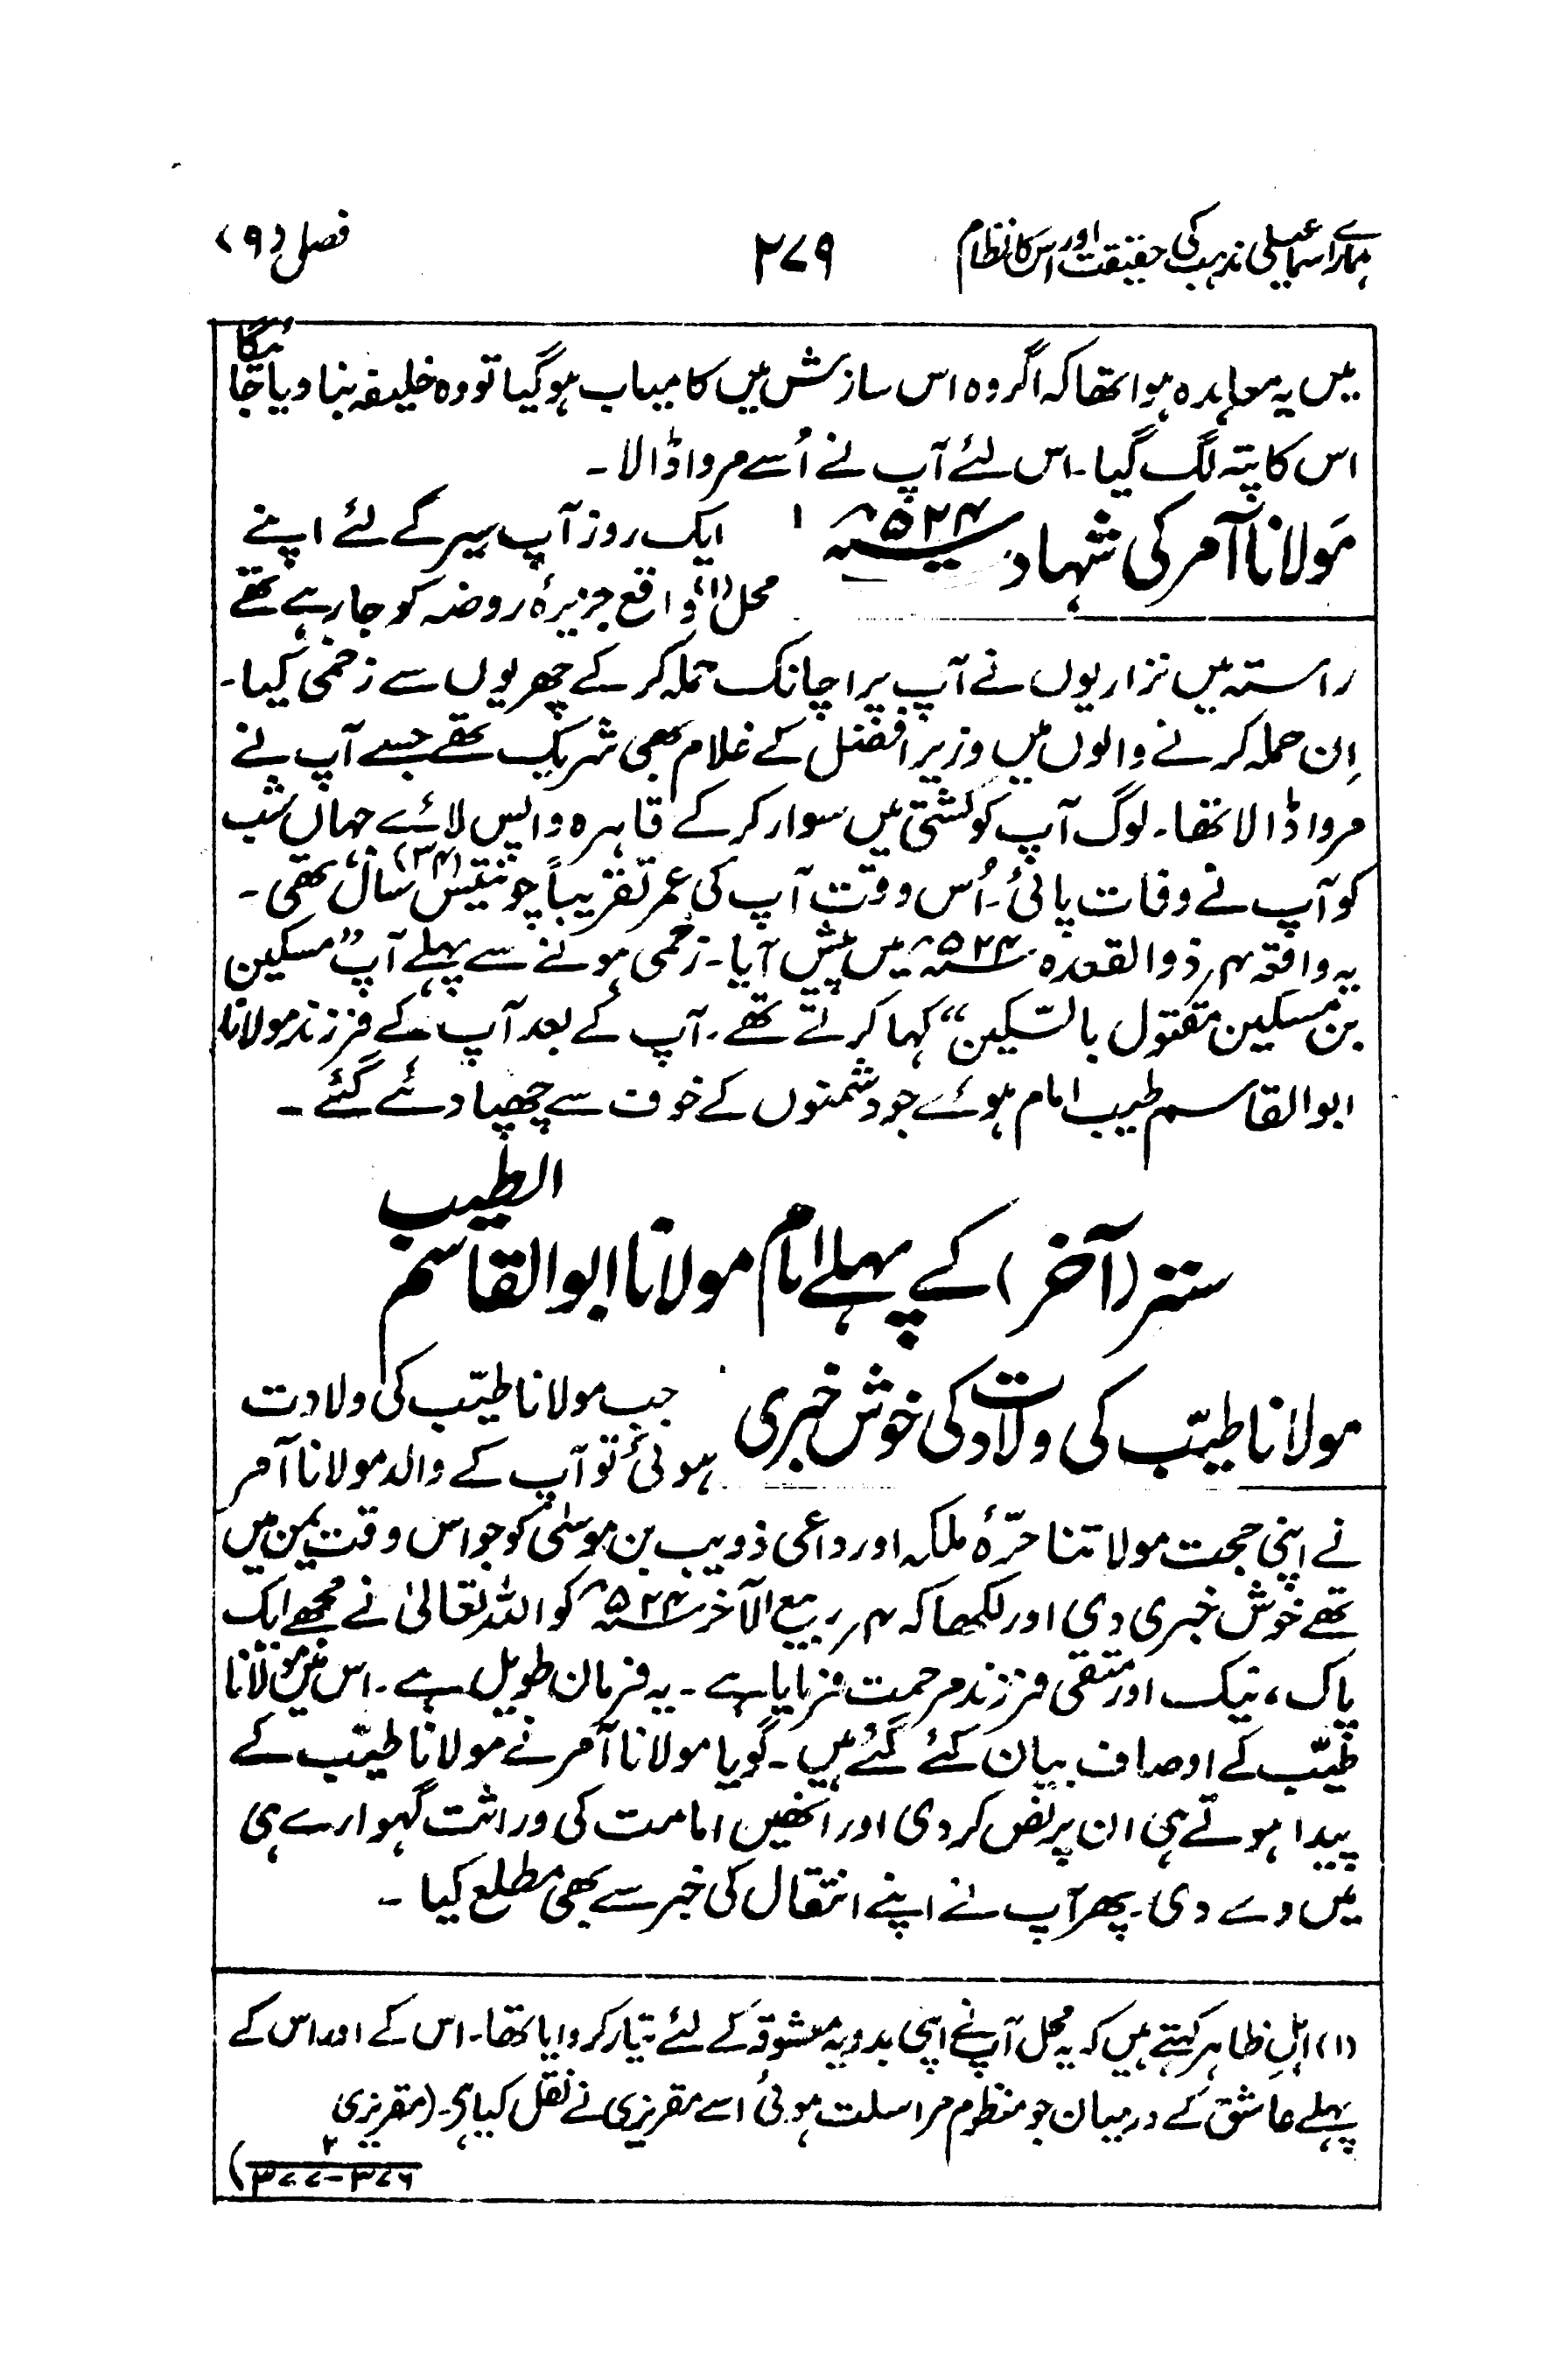 ہمارے اسماعیلی مذہب کی حقیقت اور اس کا نظام
۲۷۹
فصل (۹)
میں یہ معاہدہ ہوا تھا کہ اگر وہ اس سازش میں کامیاب ہو گیا تو وہ خلیفہ بنا دیا جائیگا
اس کا پتہ لگ گیا۔ اس لئے آپ نے اُسے مروا ڈالا۔
مَولانا آمر کی شہادت ۵۲۴ھ
ایک روز آپ سیر کے لئے اپنے
محل (۱) واقع جزیرۂ روضہ کو جا رہے تھے
راستہ میں نزاریوں نے آپ پر اچانک حملہ کر کے چھریوں سے زخمی کیا۔
اِن حملہ کرنے والوں میں وزیر افضل کے غلام بھی شریک تھے جسے آپ نے
مروا ڈالا تھا۔ لوگ آپ کو کشتی میں سوار کر کے قاہرہ واپس لائے جہاں شب
کو آپ نے وفات پائی۔ اُس وقت آپ کی عمر تقریباً چونتیس (۳۴) سال تھی۔
یہ واقعہ ۴؍ ذوالقعدہ ۵۲۴ھ میں پیش آیا۔ زخمی ہونے سے پہلے آپ ”مسکین
بن مسکین مقتول بالسّکین“ کہا کرتے تھے۔ آپ کے بعد آپ کے فرزند مولانا
ابوالقاسم طیب امام ہوئے جو دشمنوں کے خوف سے چھپا دئے گئے۔
ستر (آخر) کے پہلے امام مولانا ابوالقاسم الطیب
مولانا طیّب کی ولادت کی خوش خبری
جب مولانا طیّب کی ولادت
ہوئی تو آپ کے والد مولانا آمر
نے اپنی حجت مولاتنا حرّۂ ملکہ اور داعی ذویب بن موسیٰ کو جو اس وقت یمن میں
تھے خوش خبری دی اور لکھا کہ ۴؍ ربیع الآخر ۵۲۴ھ کو اللہ تعالیٰ نے مجھے ایک
پاک، نیک اور متقی فرزند مرحمت فرمایا ہے۔ یہ فرمان طویل ہے۔ اس میں مولانا
طیّب کے اوصاف بیان کئے گئے ہیں۔ گویا مولانا آمر نے مولانا طیّب کے
پیدا ہوتے ہی ان پر نص کر دی اور انھیں امامت کی وراثت گہوارے ہی
میں دے دی۔ پھر آپ نے اپنے انتقال کی خبر سے بھی مطلع کیا۔
(۱) اہلِ ظاہر کہتے ہیں کہ یہ محل آپ نے اپنی بدویہ معشوقہ کے لئے تیار کروایا تھا۔ اس کے اور اس کے
پہلے عاشق کے درمیان جو منظوم مراسلت ہوئی اسے مقریزی نے نقل کیا ہے۔ (مقریزی
۲
۳۷۶-۳۷۷)